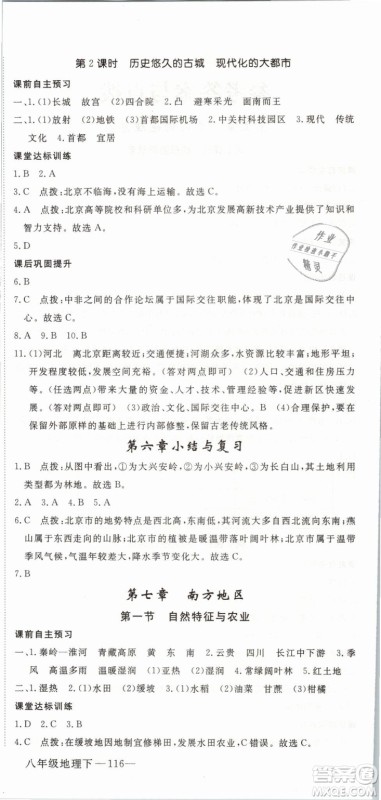 第2课时 历史悠久的古城 现代化的大都市
课前自主预习
一、1.(1)长城 故宫 (2)四合院 2.凸 避寒采光 面南而居
二、1.(1)放射 (2)地铁 (3)首都 2.中关村科技园区 3.现代 传统
4.国家 新 首都
课堂达标训练
1.B 2.A
3.C 点拨:北京不临海,故选C。
4.C 点拨:北京高等院校众多,为北京发展高新技术产业提供了知识和
智力支持。故选C。
课后巩固提升
5.A 6.C
7.C 点拨:中非之间的合作论坛属于国际交往职能,体现了北京是国际
交往中心。故选C。
8.D 9.A 10.B
11.(1)河北 离北京距离较近;河湖众多,水资源较丰富;面积广大,地价低;
开发程度较低,发展空间充足等。(答对两点即可) (2)人口、首都功能、
环境压力等。(答对两点即可) (3)资金、技术、人才、现代城市建设经
验、管理经验等。 (4)政治、文化、国际交往中心 B (5)合理,要在
保留外部原样的基础上进行内部修整,保持古老传统风格。
第六章小结与复习
1.B 点拨:从图中可以看出,①为大兴安岭,②为小兴安岭,③为长白山,其土地利用
类型都为林地。故选B。
2.A 3.B 4.A 5.A
6.C 点拨:北京市的地势特点是西北高、东南低,河流大多发源于西北
部的山上,流向东南。北京市的植被类型主要是温带落叶阔叶林;温带
季风气候,降水季节分配不均。故选C。
7.D
第七章 南方地区
第一节 自然特征与农业
课前自主预习
一、1.秦岭—淮河 青藏高原 黄 东 南 2.四川 云贵 长江中下游
3.季风 高温 温暖湿润 4.湿润 长江 珠江 较大 汛期 常绿阔叶林
丰富 四季常绿
二、1.湿热 (1)水田 (2)缓坡 (3)水稻 2.油菜 甘蔗 (2)柑橘
课堂达标训练
1.B 2.C 3.B
4.C 点拨:缓坡地在当地宜修梯田、发展种植业,C错误。故选C。
八年级地理下—116—
作业
精灵